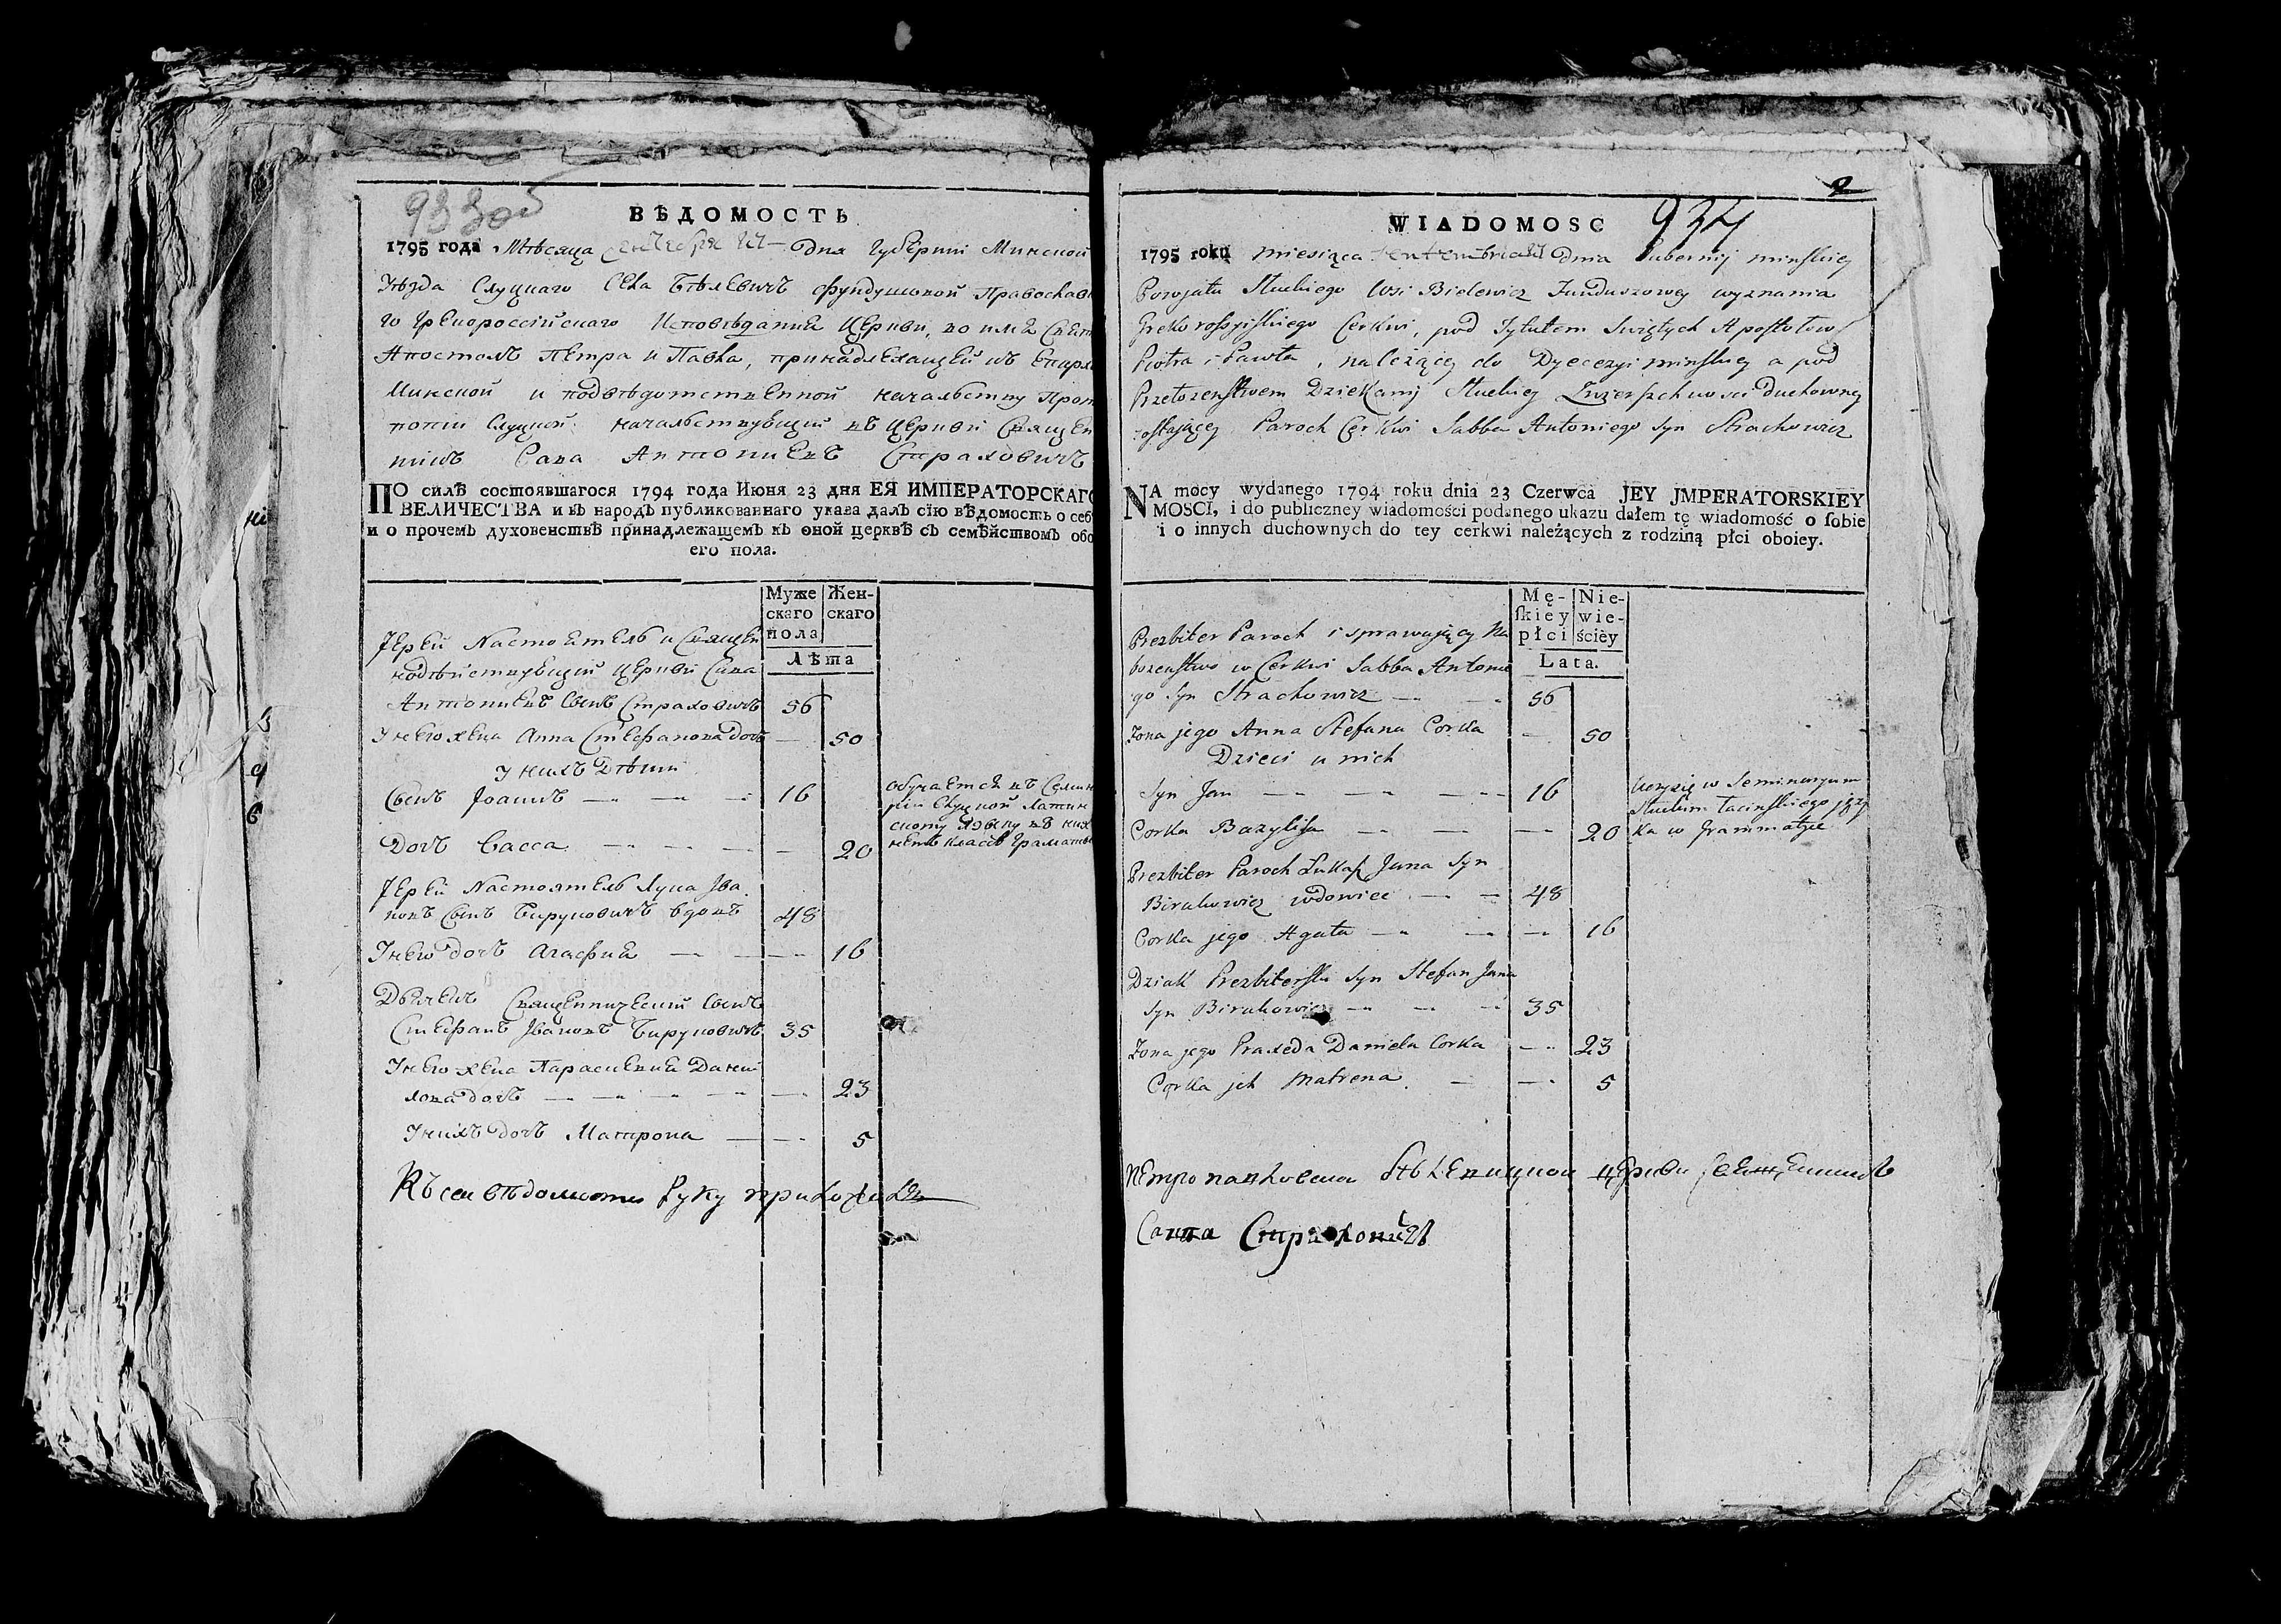 933об
ВѢДОМОСТЬ
1795 года Мѣсяца Сентебря дня Губерніи Минской
Уѣзда Слуцкаго Села Бѣлевичъ фундушовой Православ
го Грекороссійскаго Исповѣдания Церкви, во имя Свят
Апостолъ Петра и Павла, принадлежащей къ Епарх
Минской и подвѣдомственной начальству Прот
попіи Слуцкой. начальствующій въ Церкви Священ
никъ Сава Антониевъ Страховичъ
ПО силѣ состоявшагося 1794 года Июня 23 дня ЕЯ ИМПЕРАТОРСКАГО
ВЕЛИЧЕСТВА и въ народъ публикованнаго указа далъ сїю вѣдомость о себѣ
и о прочемъ духовенствѣ принадлежащемъ къ оной церквѣ съ семѣйствомъ обо
его пола.
Муже
скаго
пола
Жен-
скаго
Лѣта
Іерей Настоятель и Священ
нодѣйствующій Церкви Сава
Антониевъ Сынъ Страховичъ 56
У него жена Анна Стефанова дочь — 50
У нихъ Дѣти
Сынъ Іоаннъ — — — 16
обучается въ Семин
ріи Слуцкой Латин
скому Языку въ ниж
немъ класѣ Граматы
Дочь Васса — — — — 20
Іерей Настоятель Лука Ива
новъ Сынъ Бируковичъ вдовъ 48
У него дочь Агафия — — — 16
Дьячекъ Священническій Сынъ
Стефанъ Ивановъ Бируковичъ 35
У него жена Параскевия Дании
лова дочь — — — — — 23
У нихъ дочь Матрона — — 5
Къ сеи вѣдомости руку приложилъ
2
WIADOMOSC 934
1795 roku miesiąca Septembra dnia Gubernij minskiey
Powjatu Słuckiego Wsi Bielewicz Funduszowey wyznania
Greko rossyiskiego Cerkwi, pod Tytułem Swiętych Apostołow
Piotra i Pawła, należącey do Dyecezyi minskiey a pod
Przełożenstwem Dziekanij Słuckiey Zwierzchnosci duchowney
zostającey Paroch Cerkwi Sabba Antoniego syn Strachowicz
NA mocy wydanego 1794 roku dnia 23 Czerwca JEY JMPERATORSKIEY
MOSCI, i do publiczney wiadomości podanego ukazu dałem tę wiadomość o ſobie
i o innych duchownych do tey cerkwi należących z rodziną płci oboiey.
Mę-
ſkiey
płci
Nie-
wie-
ściéy
Lata.
Prezbiter Paroch i sprawujący Na
bozenstwo w Cerkwi Sabba Antonie
go Syn Strachowicz — — 56
Zona jego Anna Stefana Corka — 50
Dzieci u nich
Syn Jan — — — — 16
Uczy się w Seminaryum
Słuckim Łacinskiego języ
ka w Grammatyce
Corka Bazylisa — — — 20
Prezbiter Paroch Łukasz Jana Syn
Birukowicz wdowiec — — 48
Corka jego Agata — — — 16
Dziak Prezbiterski Syn Stefan Jana
Syn Birukowicz — — — 35
Zona jego Praxeda Daniela Corka — 23
Corka jch Matrena. — — 5
Петро павловска Бѣлевицкои церкви Священникъ
Савва Страховичъ